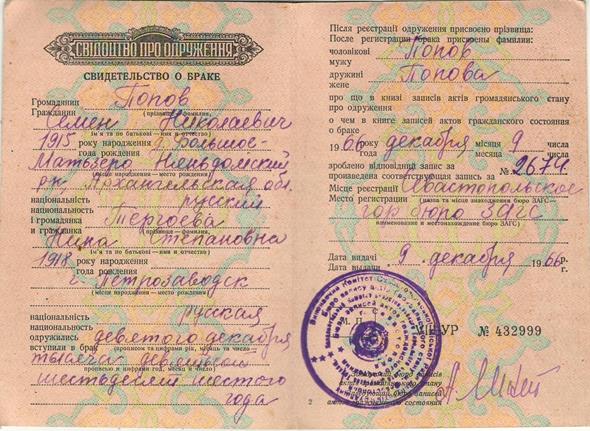 СВІДОЦТВО ПРО ОДРУЖЕННЯ
СВИДЕТЕЛЬСТВО О БРАКЕ
Громадянин Попов
Гражданин (прізвище — фамилия,
Семен Николаевич
ім'я та по батькові — имя и отчество)
1915 року народження д. Большое-
года рождения
Матьзеро Няндомский
(місце народження — место рождения)
р-н Архангельская обл.
національність русский
национальность
і громадянка Тергоева
и гражданка (прізвище — фамилия,
Нина Степановна
ім'я та по батькові — имя и отчество)
1918 року народження
года рождения
г. Петрозаводск
(місце народження — место рождения)
національність русская
национальность
одружились девятого декабря
вступили в брак прописом та цифрами рік, місяць та число —
тысяча девятьсот
прописью и цифрами год, месяц и число)
шестьдесят шестого
года
Після реєстрації одруження присвоєно прізвища:
После регистрации брака присвоены фамилии:
чоловікові Попов
мужу
дружині Попова
жене
про що в книзі записів актів громадянського стану
про одруження
о чем в книге записей актов гражданского состояния
о браке
1966 року декабря місяця 9 числа
года месяца числа
зроблено відповідний запис за № 2674
произведена соответствующая запись за
Місце реєстрації Севастопольское
Место регистрации (назва та місце знаходження бюро ЗАГС—
гор бюро ЗАГС
наименование и местонахождение бюро ЗАГС)
Дата видачі 9. декабря 1966 р.
Дата выдачи г.
М. П.
УР № 432999
2